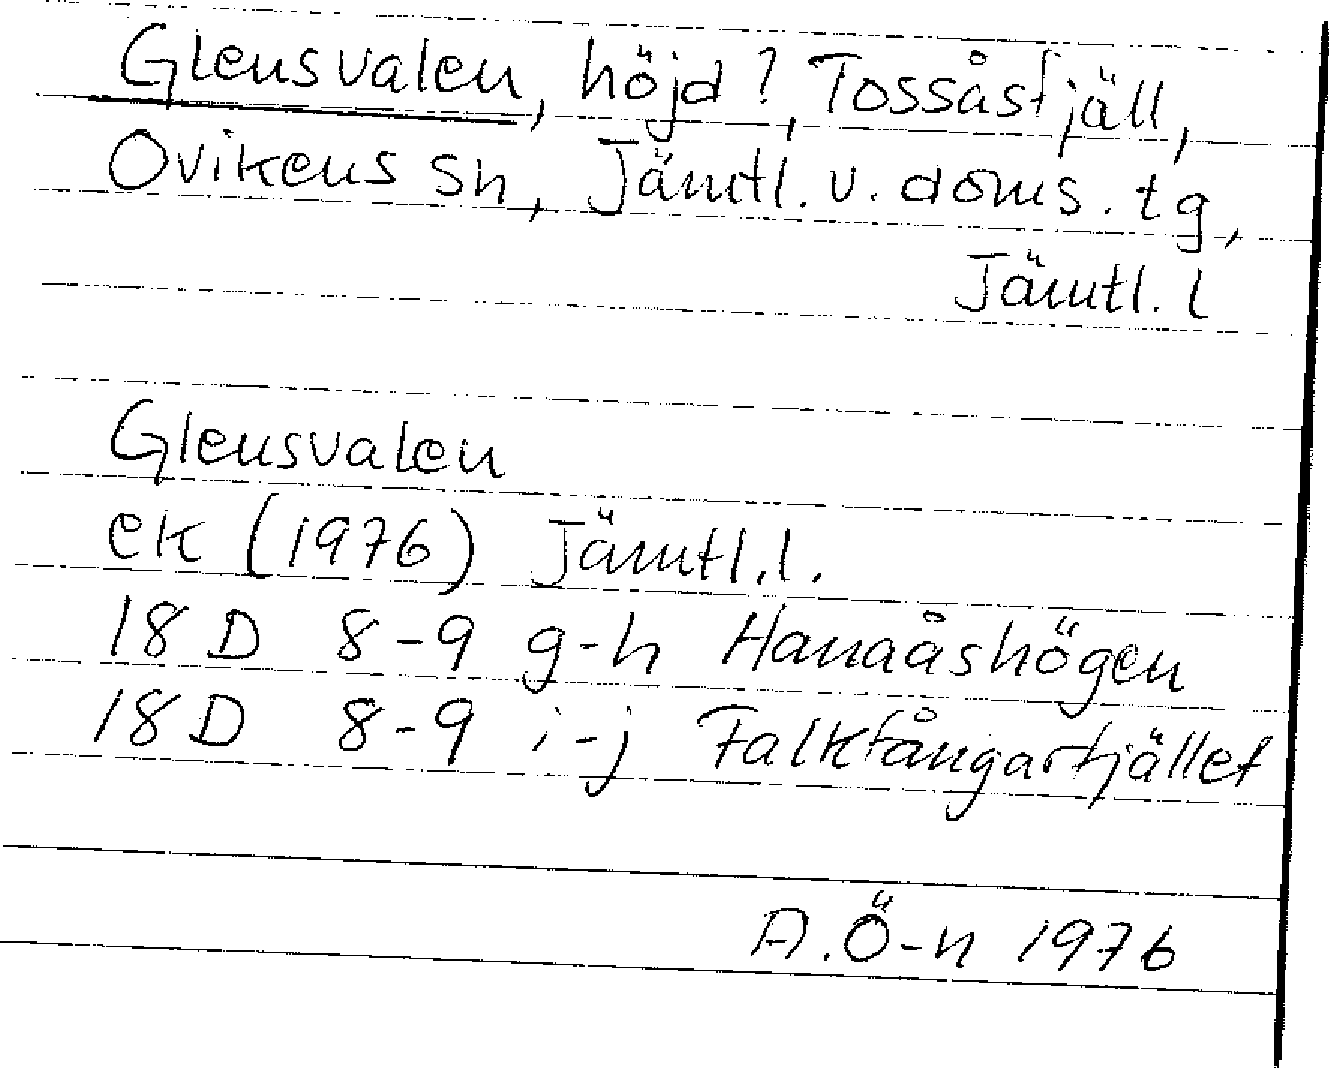 Glensvalen, höjd?, Tossåsfjäll,
Ovikens sn, Jämtl. v. doms. tg,
Jämtl. l
Glensvalen
ek (1976) Jämtl.l.
18 D 8-9 g-h Hanaåshögen
18 D 8-9 i-j Falkfångarfjället
A.Ö-n 1976